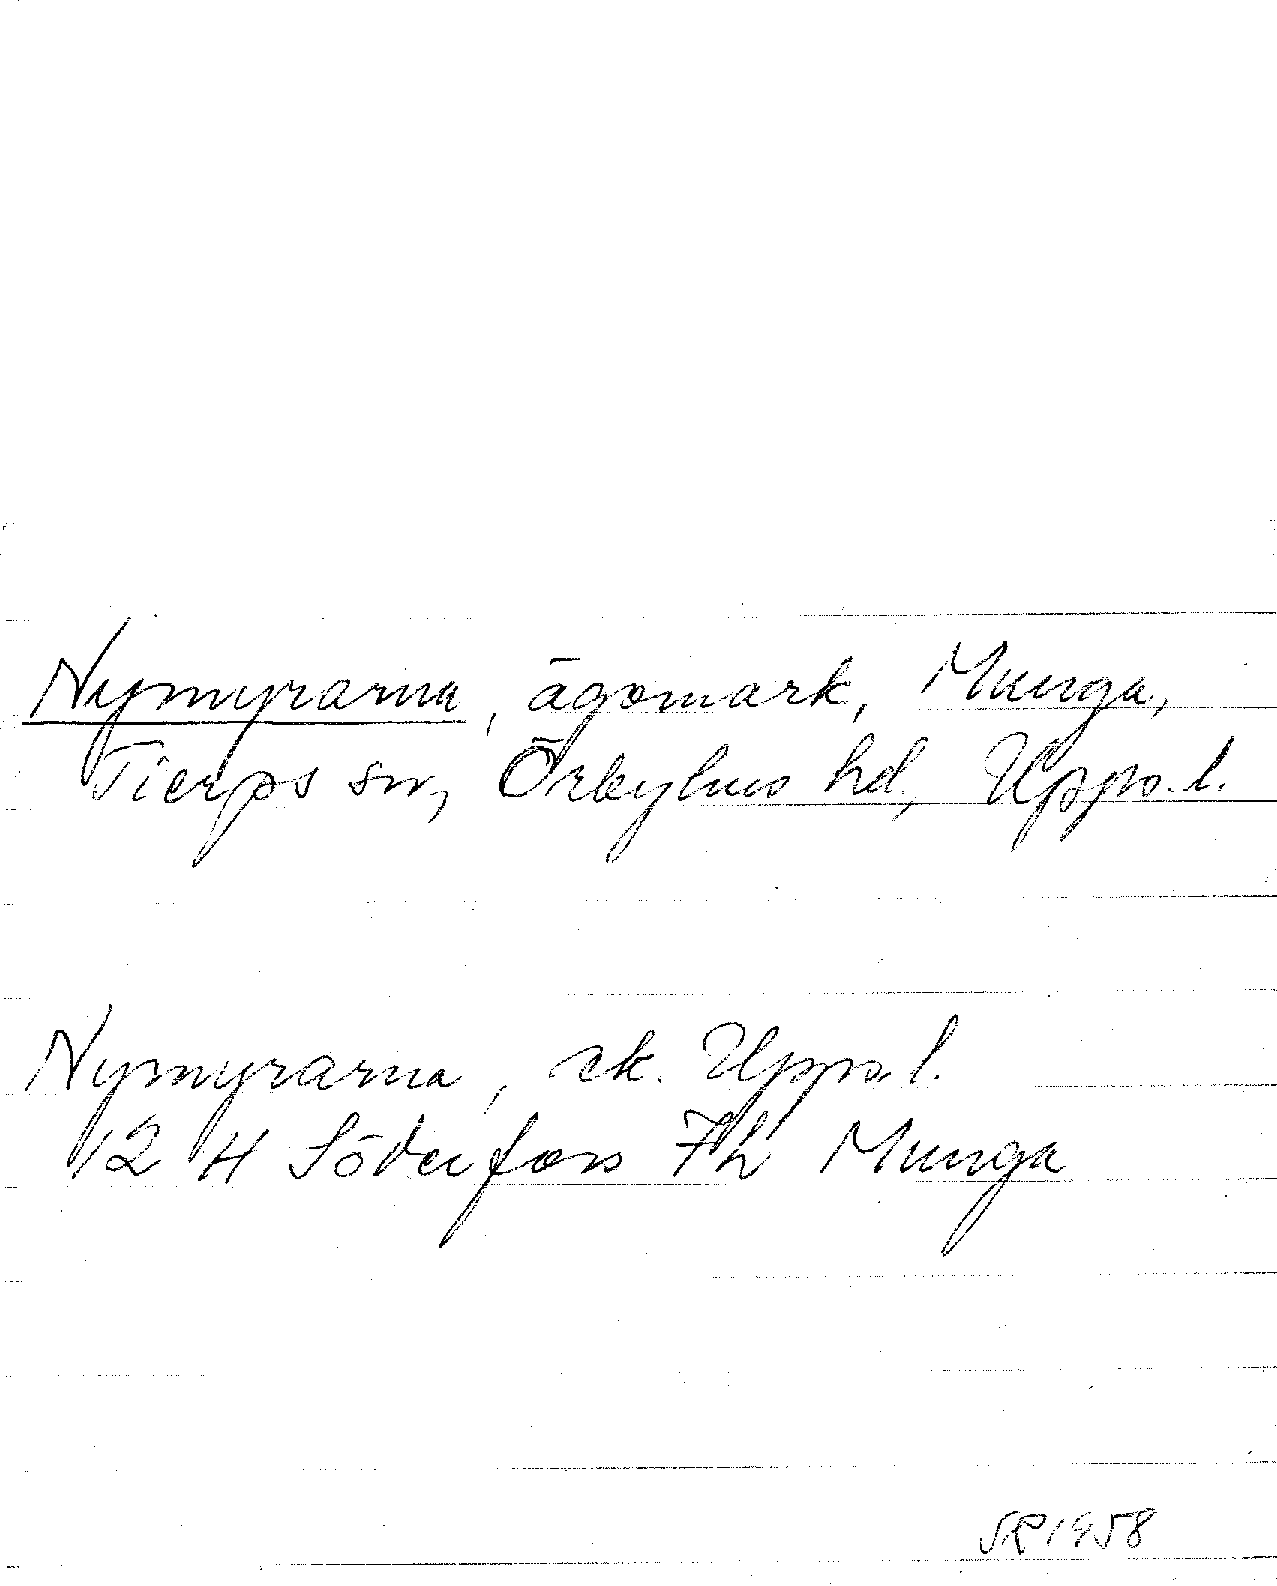 Nymyrarna, ägomark, Munga,
Tierps sn, Örbyhus hd, Upps. l.
Nymyrarna, ek. Upps. l.
12 H Söderfors 7h Munga
SR 1958